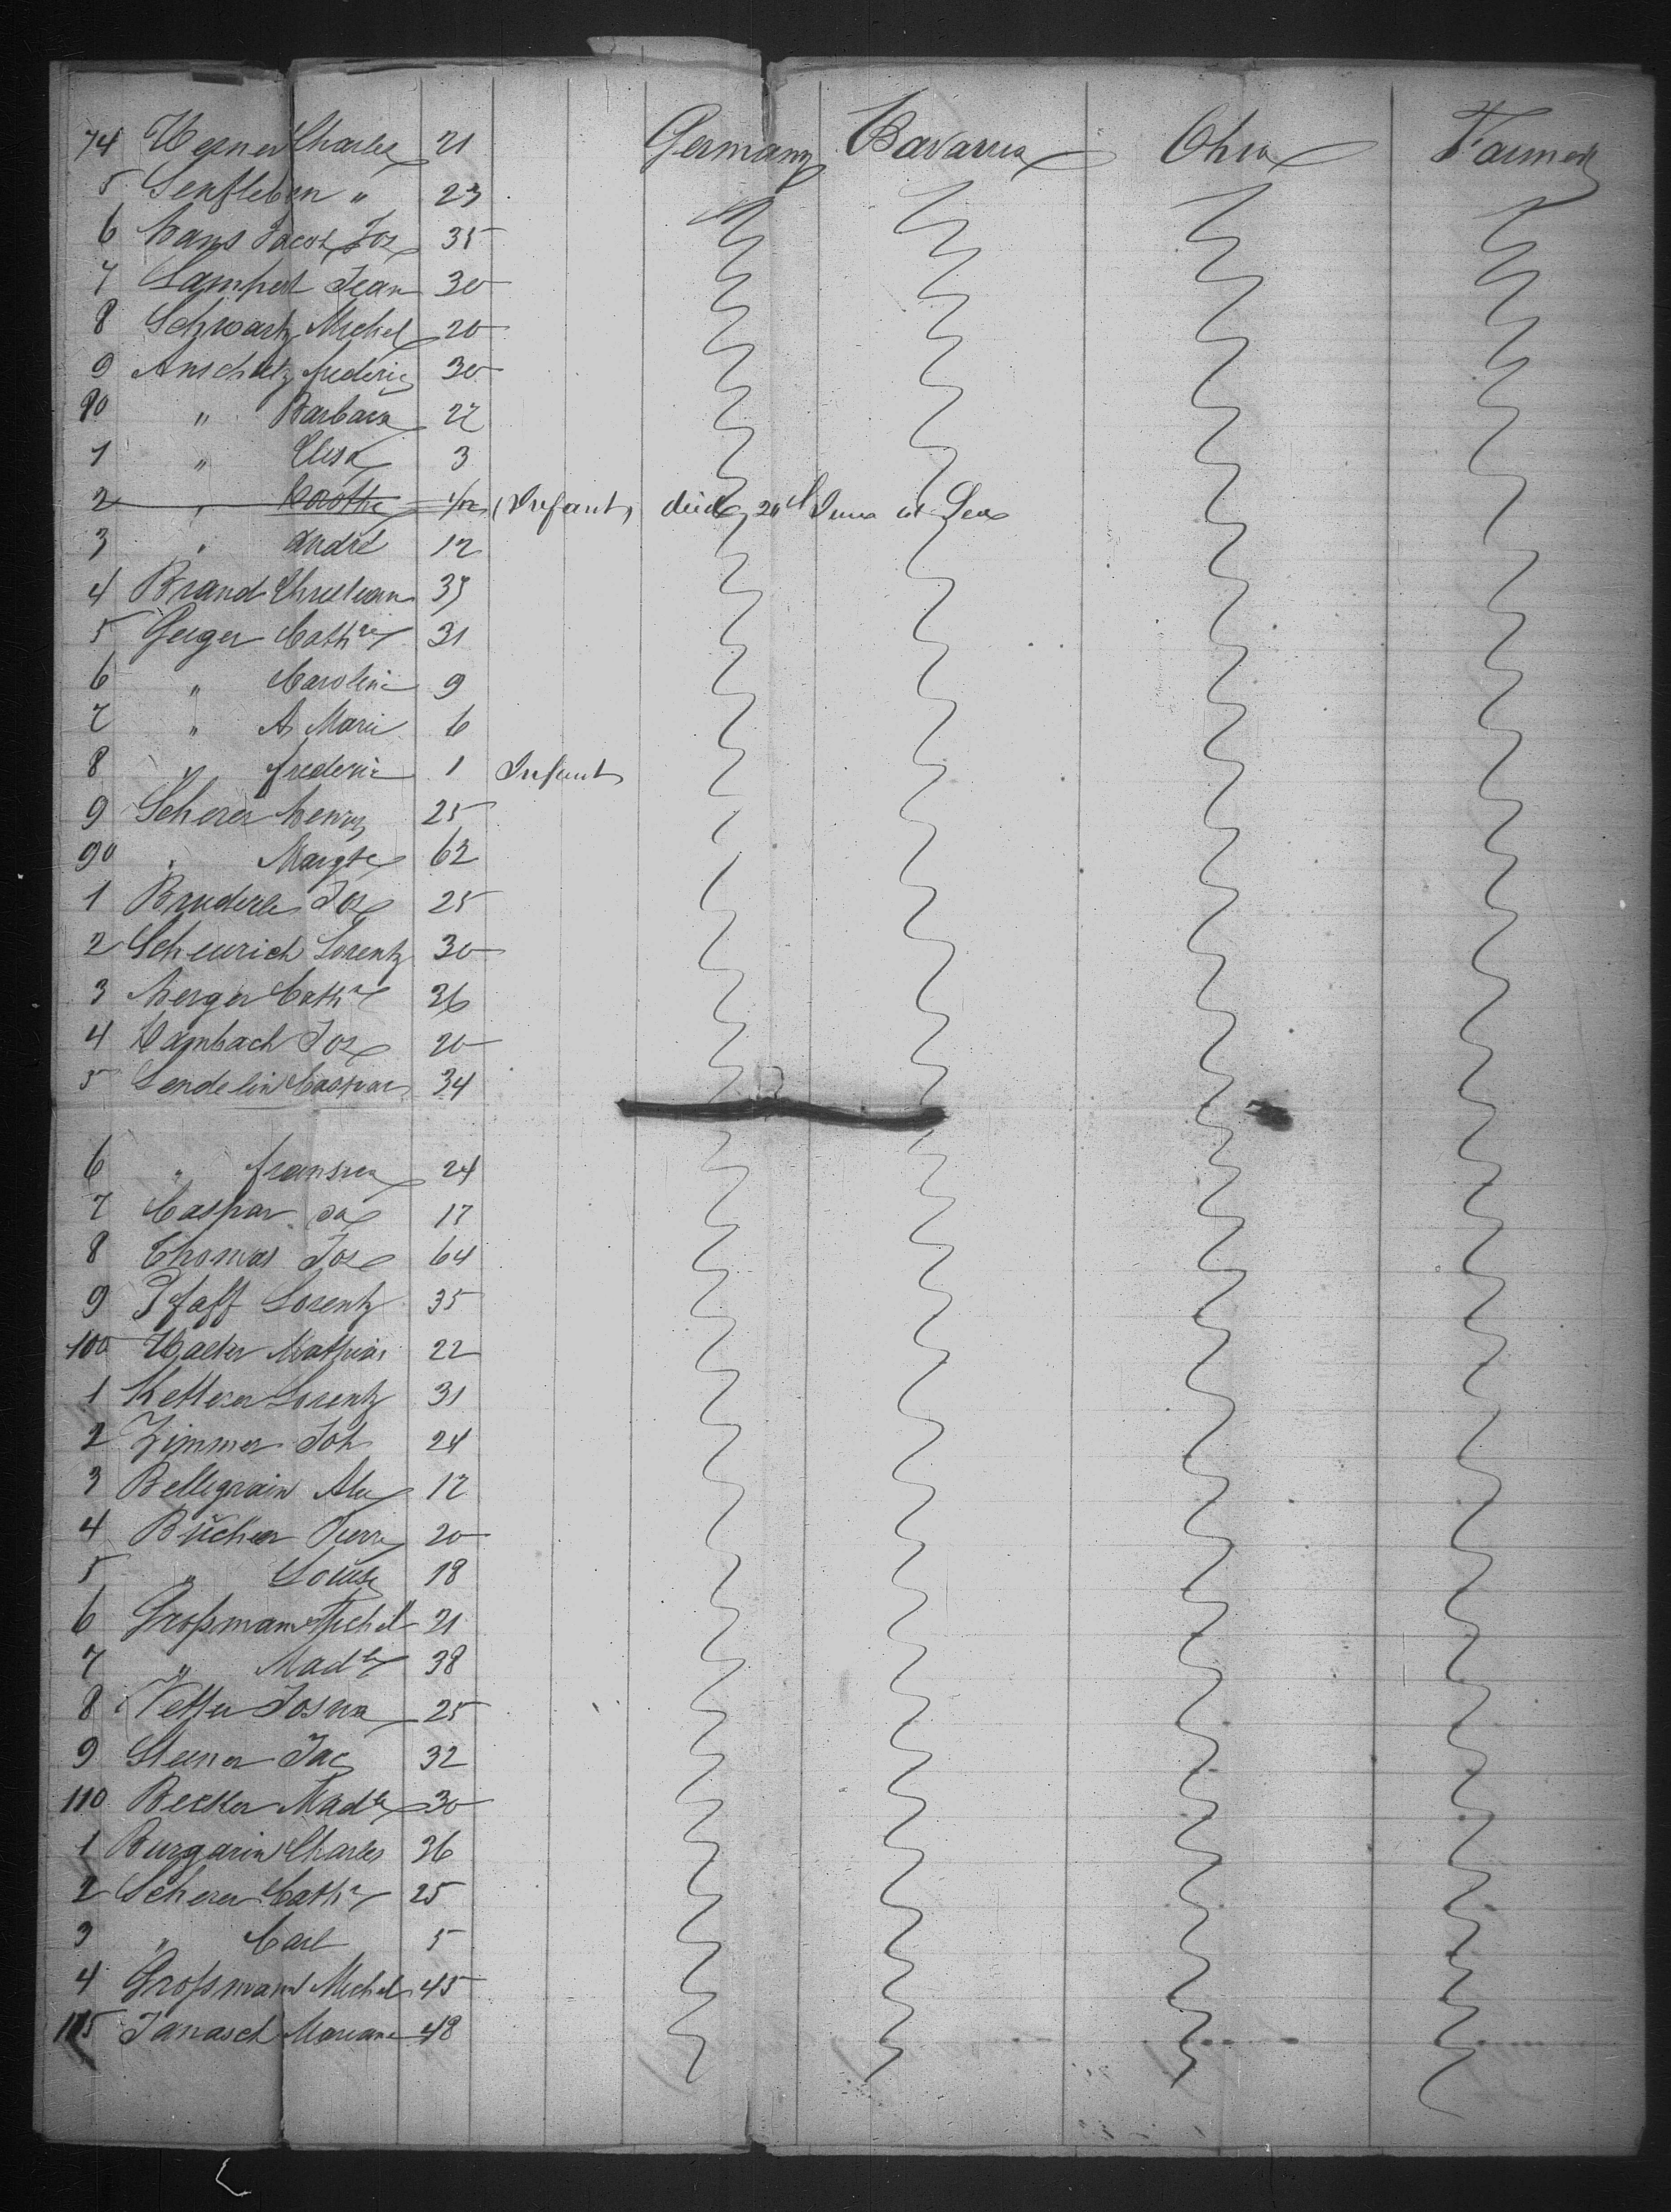 74 Werner Charles 21 Germany Bavaria Ohio Farmer
5 Senfleben " 23
6 Hans Jacob Jos 35
7 Lampert Jean 30
8 Schwartz Michel 20
9 Anschutz frederic 30
80 " Barbara 22
1 " Elisa 3
2 " 1/12 (Infant) died 20th June at Sea
3 " André 12
4 Brand Christian 35
5 Geiger Cathre 31
6 " Caroline 9
7 " A Marie 6
8 " frederic 1 Infant
9 Scherer henry 25
90 " Margte 62
1 Bruderle Jos 25
2 Scheurich Lorentz 30
3 herger Cathre 36
4 Hambach Jos 20
5 Sendelin Caspar 34
6 " 24
7 Caspar 17
8 Thomas Jos 64
9 Pfaff Lorentz 35
100 Walter Mathias 22
1 Ketterer Lorentz 31
2 Zimmer Joh 24
3 Bellegrain Alex 12
4 Bücher Pierre 20
5 " Louise 18
6 Großmann Michel 21
7 " Made 38
8 Vetter 25
9 Steiner Jac 32
110 Becker Made 30
1 Burgarin Charles 36
2 Scherer Cathre 25
3 " Carl 5
4 Großmann Michel 45
115 Janasch Mariane 48